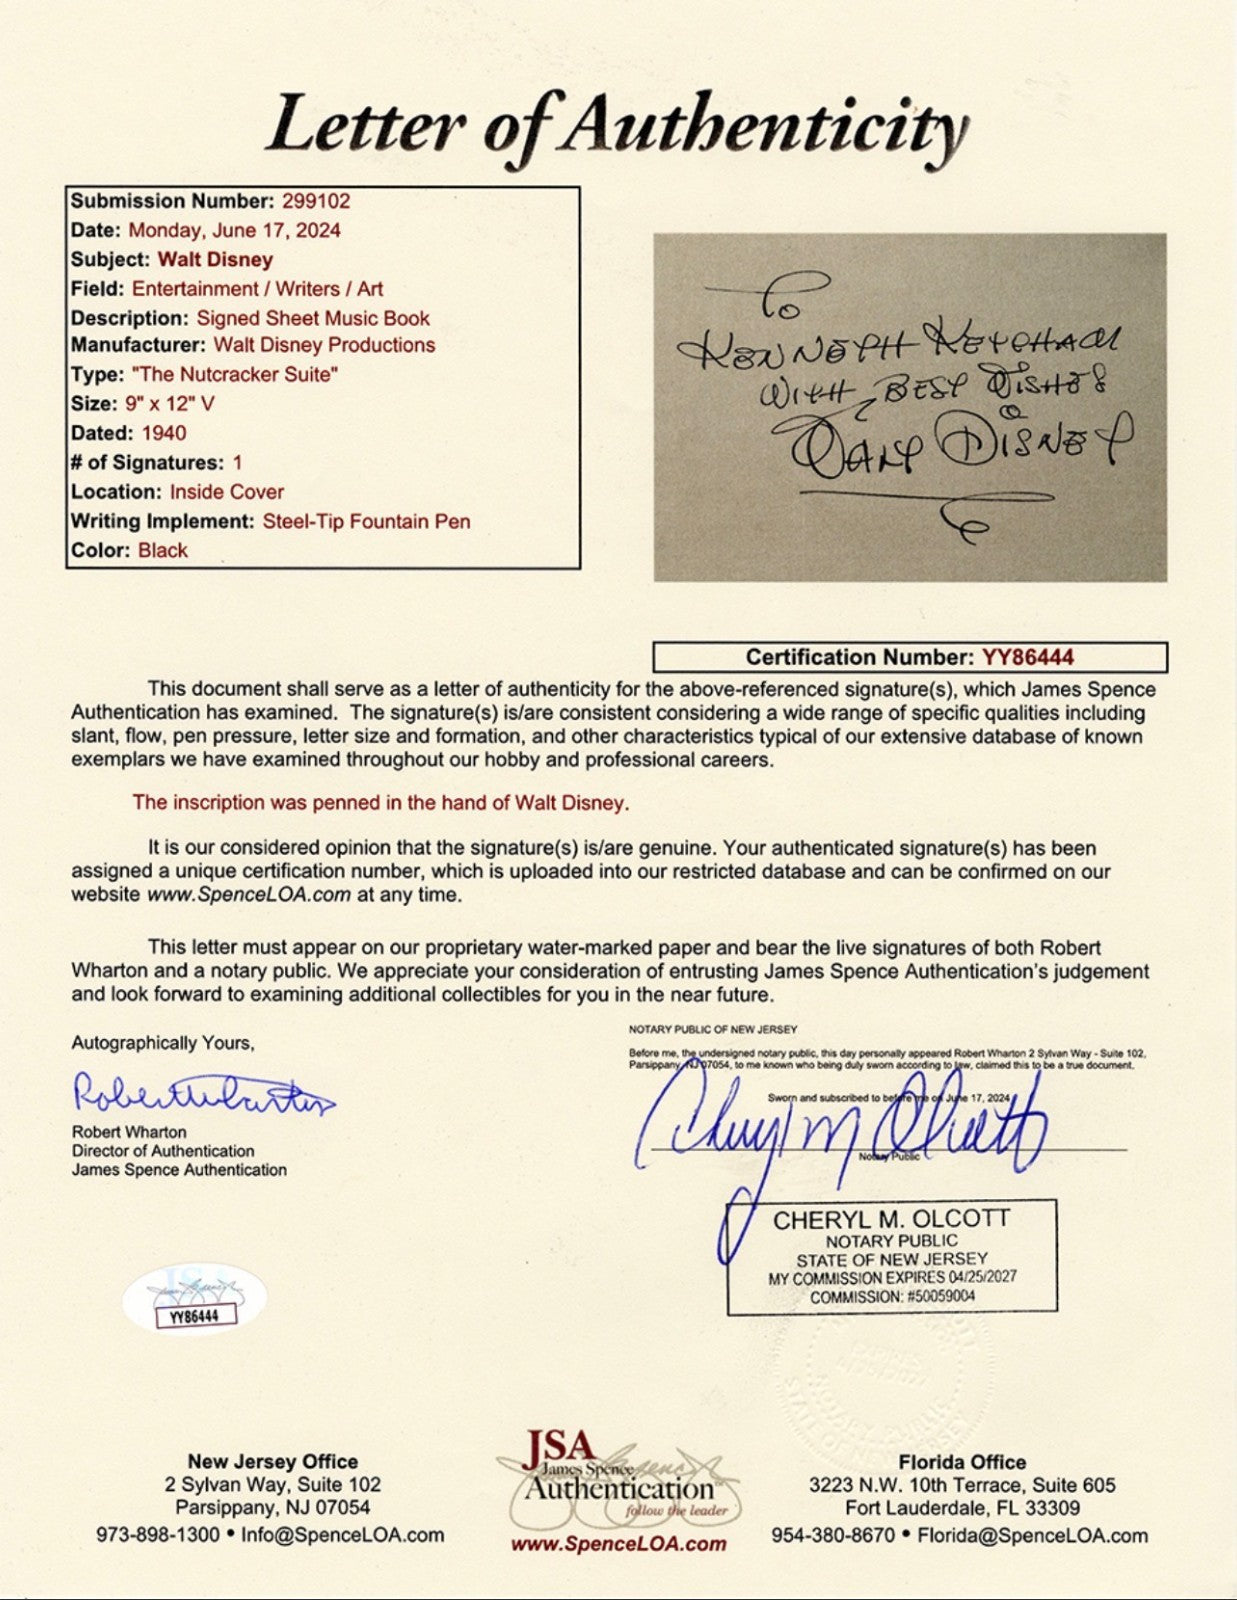 Letter of Authenticity
Submission Number: 299102
Date: Monday, June 17, 2024
Subject: Walt Disney
Field: Entertainment / Writers / Art
Description: Signed Sheet Music Book
Manufacturer: Walt Disney Productions
Type: "The Nutcracker Suite"
Size: 9" x 12" V
Dated: 1940
# of Signatures: 1
Location: Inside Cover
Writing Implement: Steel-Tip Fountain Pen
Color: Black
To
Kenneth Ketcham
With Best Wishes
Walt Disney
Certification Number: YY86444
This document shall serve as a letter of authenticity for the above-referenced signature(s), which James Spence
Authentication has examined. The signature(s) is/are consistent considering a wide range of specific qualities including
slant, flow, pen pressure, letter size and formation, and other characteristics typical of our extensive database of known
exemplars we have examined throughout our hobby and professional careers.
The inscription was penned in the hand of Walt Disney.
It is our considered opinion that the signature(s) is/are genuine. Your authenticated signature(s) has been
assigned a unique certification number, which is uploaded into our restricted database and can be confirmed on our
website www.SpenceLOA.com at any time.
This letter must appear on our proprietary water-marked paper and bear the live signatures of both Robert
Wharton and a notary public. We appreciate your consideration of entrusting James Spence Authentication's judgement
and look forward to examining additional collectibles for you in the near future.
Autographically Yours,
Robert Wharton
Robert Wharton
Director of Authentication
James Spence Authentication
NOTARY PUBLIC OF NEW JERSEY
Before me, the undersigned notary public, this day personally appeared Robert Wharton 2 Sylvan Way - Suite 102,
Parsippany, NJ 07054, to me known who being duly sworn according to law, claimed this to be a true document.
Sworn and subscribed to before me on June 17, 2024
Cheryl M Olcott
Notary Public
CHERYL M. OLCOTT
NOTARY PUBLIC
STATE OF NEW JERSEY
MY COMMISSION EXPIRES 04/25/2027
COMMISSION: #50059004
JSA
YY86444
New Jersey Office
2 Sylvan Way, Suite 102
Parsippany, NJ 07054
973-898-1300 • Info@SpenceLOA.com
JSA
James Spence
Authentication
follow the leader
www.SpenceLOA.com
Florida Office
3223 N.W. 10th Terrace, Suite 605
Fort Lauderdale, FL 33309
954-380-8670 • Florida@SpenceLOA.com